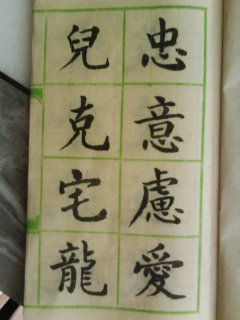 忠意慮愛
兒克宅龍